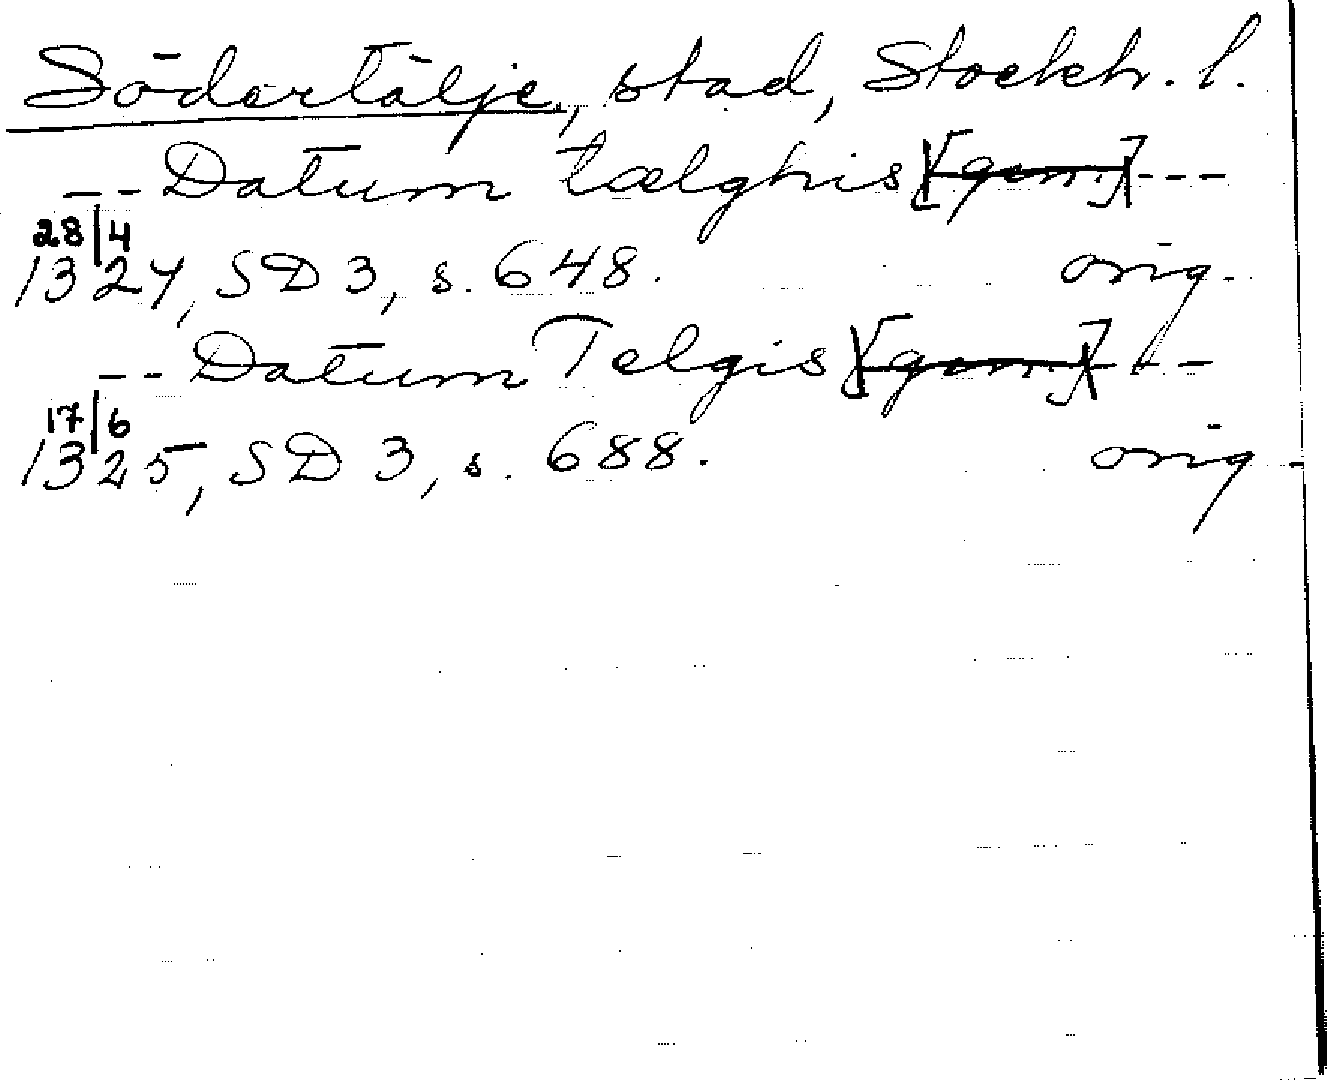 Södertälje, stad, Stockh. l.
-- Datum tælghis [gen.] ---
28/4
1324, SD 3, s. 648. orig.
-- Datum Telgis [gen.] ---
17/6
1325, SD 3, s. 688. orig